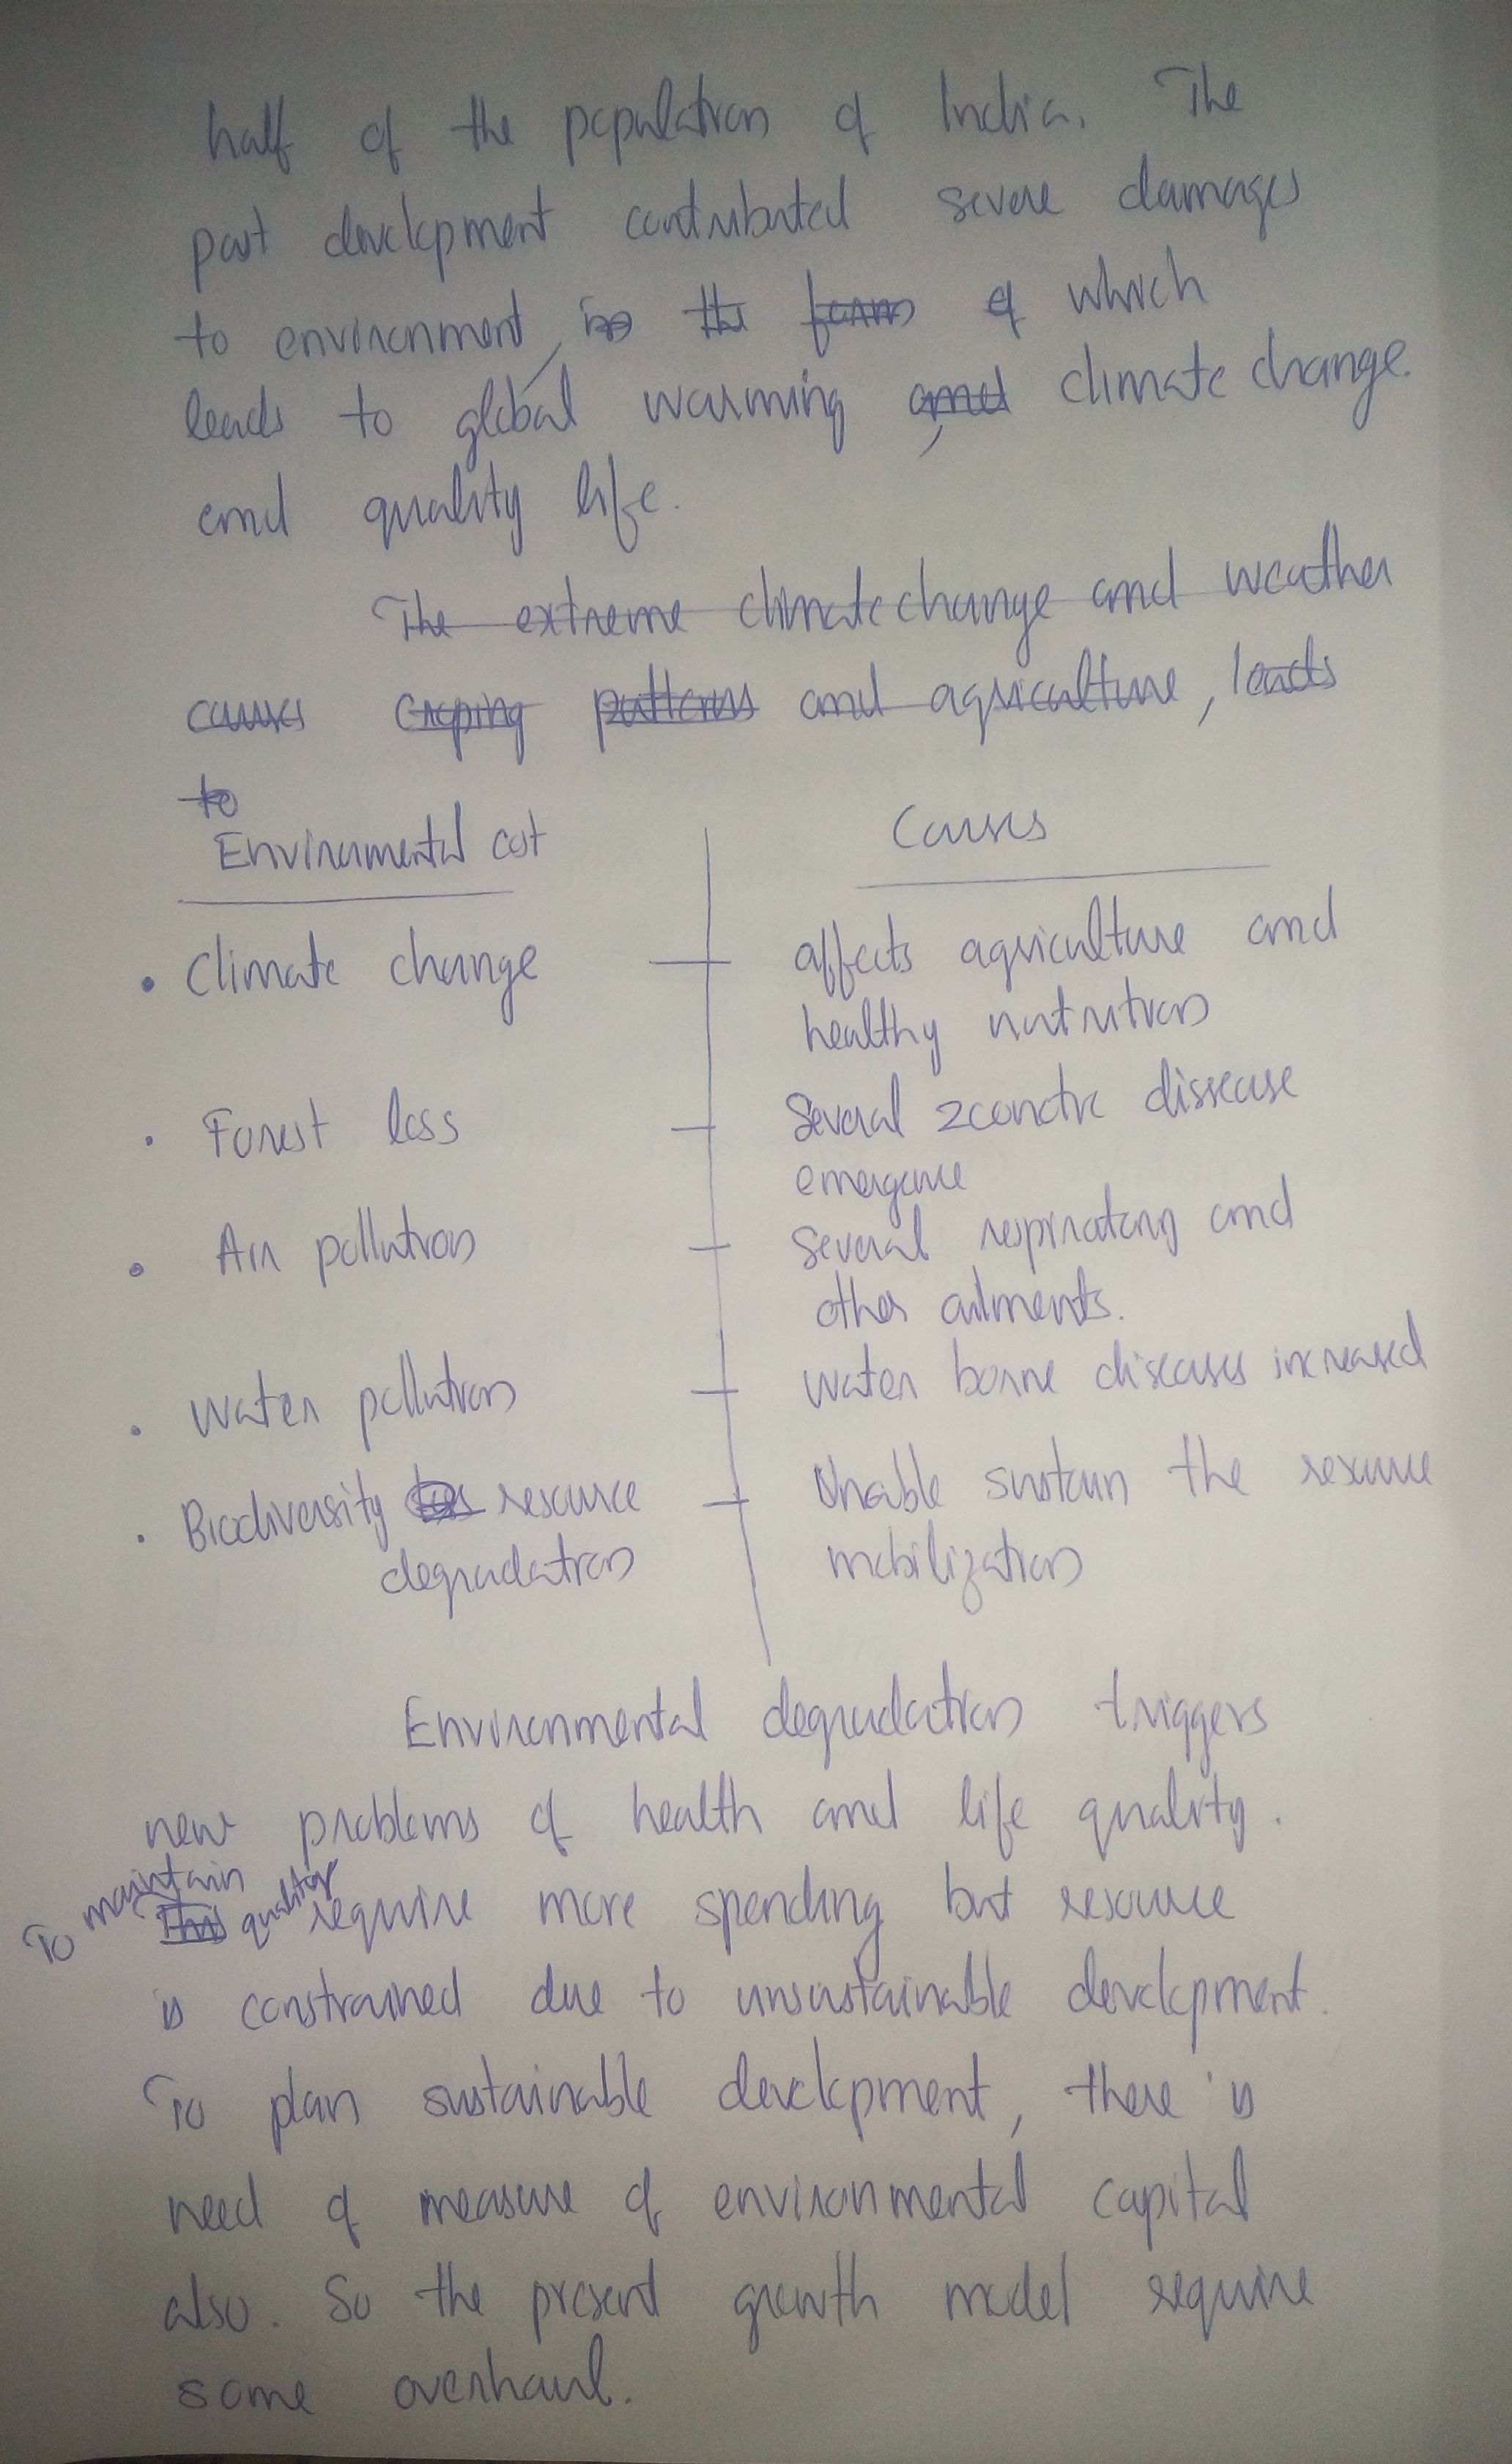 half of the population of India. The
past development contributed severe damages
to environment, in the form of which
leads to global warming and, climate change.
and quality life.
The extreme climate change and weather
causes croping patterns and agriculture, leads
to
Environmental cost Causes
• Climate change affects agriculture and
healthy nutrition
• Forest loss Several zoonotic dissease
emergence
• Air pollution Several respiratory and
other ailments.
• Water pollution Water borne diseases increased
• Biodiversity loss resource Unable sustain the resource
degradation mobilization
Environmental degradation triggers
new problems of health and life quality.
To maintain This quality require more spending but resource
is constrained due to unsustainable development.
To plan sustainable development, there is
need of measure of environmental capital
also. So the present growth model require
some overhaul.